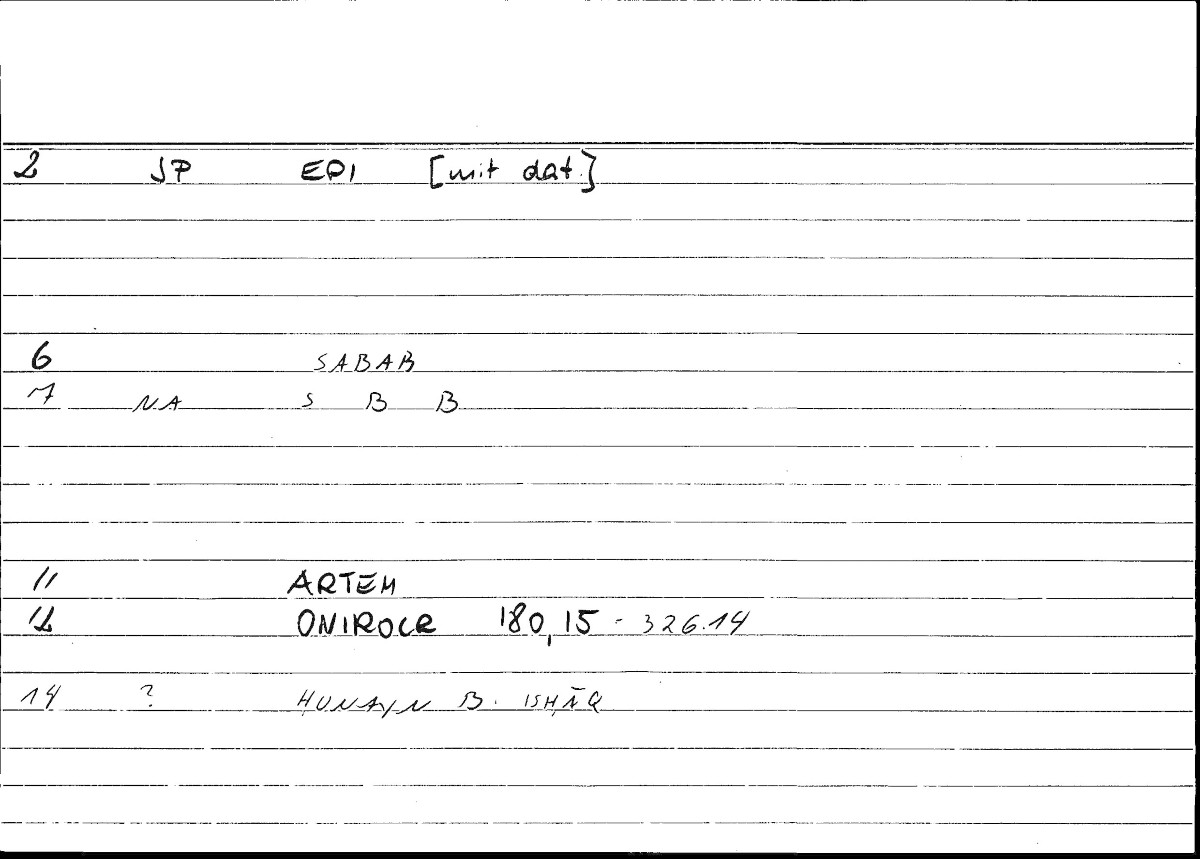 2 JP EPI [mit dat.]
6 SABAB
7 NA S B B
11 ARTEM
12 ONIROCR 180,15 - 326.14
14 ? ḤUNAYN B. ISḤĀQ